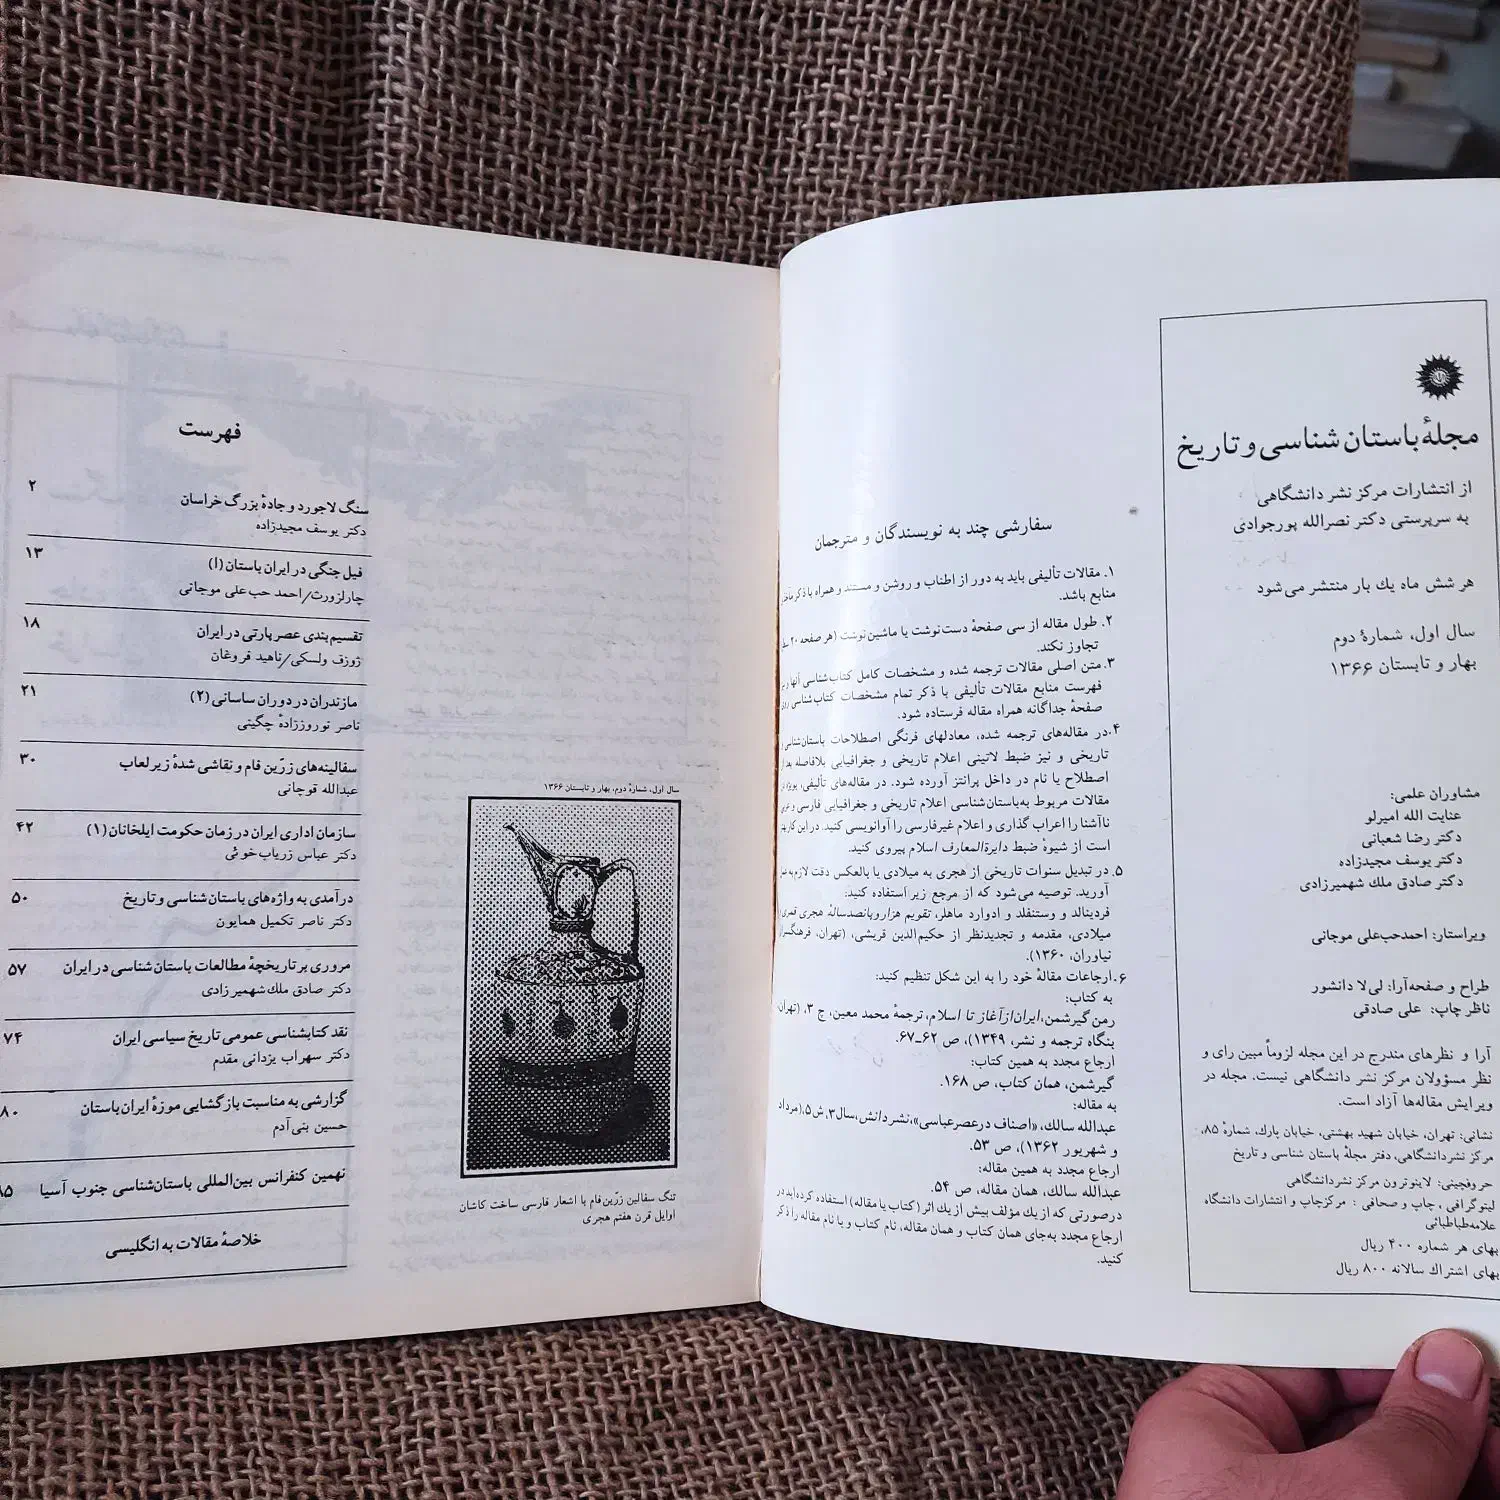 مجلهٔ باستان شناسی و تاریخ
از انتشارات مرکز نشر دانشگاهی
به سرپرستی دکتر نصرالله پورجوادی
هر شش ماه یك بار منتشر می‌شود
سال اول، شمارهٔ دوم
بهار و تابستان ۱۳۶۶
مشاوران علمی:
عنایت الله امیرلو
دکتر رضا شعبانی
دکتر یوسف مجیدزاده
دکتر صادق ملك شهمیرزادی
ویراستار: احمدحب‌علی موجانی
طراح و صفحه‌آرا: لی‌لا دانشور
ناظر چاپ: علی صادقی
آرا و نظرهای مندرج در این مجله لزوماً مبین رای و
نظر مسؤولان مرکز نشر دانشگاهی نیست. مجله در
ویرایش مقاله‌ها آزاد است.
نشانی: تهران، خیابان شهید بهشتی، خیابان پارك، شمارهٔ ۸۵،
مرکز نشردانشگاهی، دفتر مجلهٔ باستان شناسی و تاریخ
حروفچینی: لاینوترون مرکز نشردانشگاهی
لیتوگرافی، چاپ و صحافی : مرکزچاپ و انتشارات دانشگاه
علامه‌طباطبائی
بهای هر شماره ۴۰۰ ریال
بهای اشتراك سالانه ۸۰۰ ریال
سفارشی چند به نویسندگان و مترجمان
۱. مقالات تألیفی باید به دور از اطناب و روشن و مستند و همراه با ذکر
منابع باشد.
۲. طول مقاله از سی صفحهٔ دست‌نوشت یا ماشین‌نوشت (هر صفحه ۲۰
تجاوز نکند.
۳. متن اصلی مقالات ترجمه شده و مشخصات کامل کتاب‌شناسی آنها و نیز
فهرست منابع مقالات تألیفی با ذکر تمام مشخصات کتاب‌شناسی روی
صفحهٔ جداگانه همراه مقاله فرستاده شود.
۴. در مقاله‌های ترجمه شده، معادلهای فرنگی اصطلاحات باستان‌شناسی و
تاریخی و نیز ضبط لاتینی اعلام تاریخی و جغرافیایی بلافاصله بعد از
اصطلاح یا نام در داخل پرانتز آورده شود. در مقاله‌های تألیفی، بویژه در
مقالات مربوط به‌باستان‌شناسی اعلام تاریخی و جغرافیایی فارسی و عربی
ناآشنا را اعراب گذاری و اعلام غیرفارسی را آوانویسی کنید. در این کار بهتر
است از شیوهٔ ضبط دایرةالمعارف اسلام پیروی کنید.
۵. در تبدیل سنوات تاریخی از هجری به میلادی یا بالعکس دقت لازم به عمل
آورید. توصیه می‌شود که از مرجع زیر استفاده کنید:
فردینالد و وستنفلد و ادوارد ماهلر، تقویم هزاروپانصدسالهٔ هجری قمری و
میلادی، مقدمه و تجدیدنظر از حکیم‌الدین قریشی، (تهران، فرهنگسرای
نیاوران، ۱۳۶۰).
۶. ارجاعات مقالهٔ خود را به این شکل تنظیم کنید:
به کتاب:
رمن گیرشمن، ایران از آغاز تا اسلام، ترجمهٔ محمد معین، چ ۳، (تهران،
بنگاه ترجمه و نشر، ۱۳۴۹)، ص ۶۲–۶۷.
ارجاع مجدد به همین کتاب:
گیرشمن، همان کتاب، ص ۱۶۸.
به مقاله:
عبدالله سالك، «اصناف درعصرعباسی»، نشردانش، سال۳، ش۵، (مرداد
و شهریور ۱۳۶۲)، ص ۵۳.
ارجاع مجدد به همین مقاله:
عبدالله سالك، همان مقاله، ص ۵۴.
درصورتی که ازیك مؤلف بیش از یك اثر (کتاب یا مقاله) استفاده کرده‌اید در
ارجاع مجدد به‌جای همان کتاب و همان مقاله، نام کتاب و یا نام مقاله را ذکر
کنید.
سال اول، شمارهٔ دوم، بهار و تابستان ۱۳۶۶
تنگ سفالین زرّین‌فام با اشعار فارسی ساخت کاشان
اوایل قرن هفتم هجری
فهرست
سنگ لاجورد و جادهٔ بزرگ خراسان ۲
دکتر یوسف مجیدزاده
فیل جنگی در ایران باستان (۱) ۱۳
چارلزورت/احمد حب‌علی موجانی
تقسیم‌بندی عصر پارتی در ایران ۱۸
ژوزف ولسکی/ناهید فروغان
مازندران در دوران ساسانی (۲) ۲۱
ناصر نوروززادهٔ چگینی
سفالینه‌های زرّین فام و نقاشی شدهٔ زیرلعاب ۳۰
عبدالله قوچانی
سازمان اداری ایران در زمان حکومت ایلخانان (۱) ۴۲
دکتر عباس زریاب‌خوئی
درآمدی به واژه‌های باستان‌شناسی و تاریخ ۵۰
دکتر ناصر تکمیل همایون
مروری بر تاریخچهٔ مطالعات باستان‌شناسی در ایران ۵۷
دکتر صادق ملك شهمیرزادی
نقد کتابشناسی عمومی تاریخ سیاسی ایران ۷۴
دکتر سهراب یزدانی مقدم
گزارشی به مناسبت بازگشایی موزهٔ ایران‌باستان ۸۰
حسین بنی‌آدم
نهمین کنفرانس بین‌المللی باستان‌شناسی جنوب آسیا ۸۵
خلاصهٔ مقالات به انگلیسی